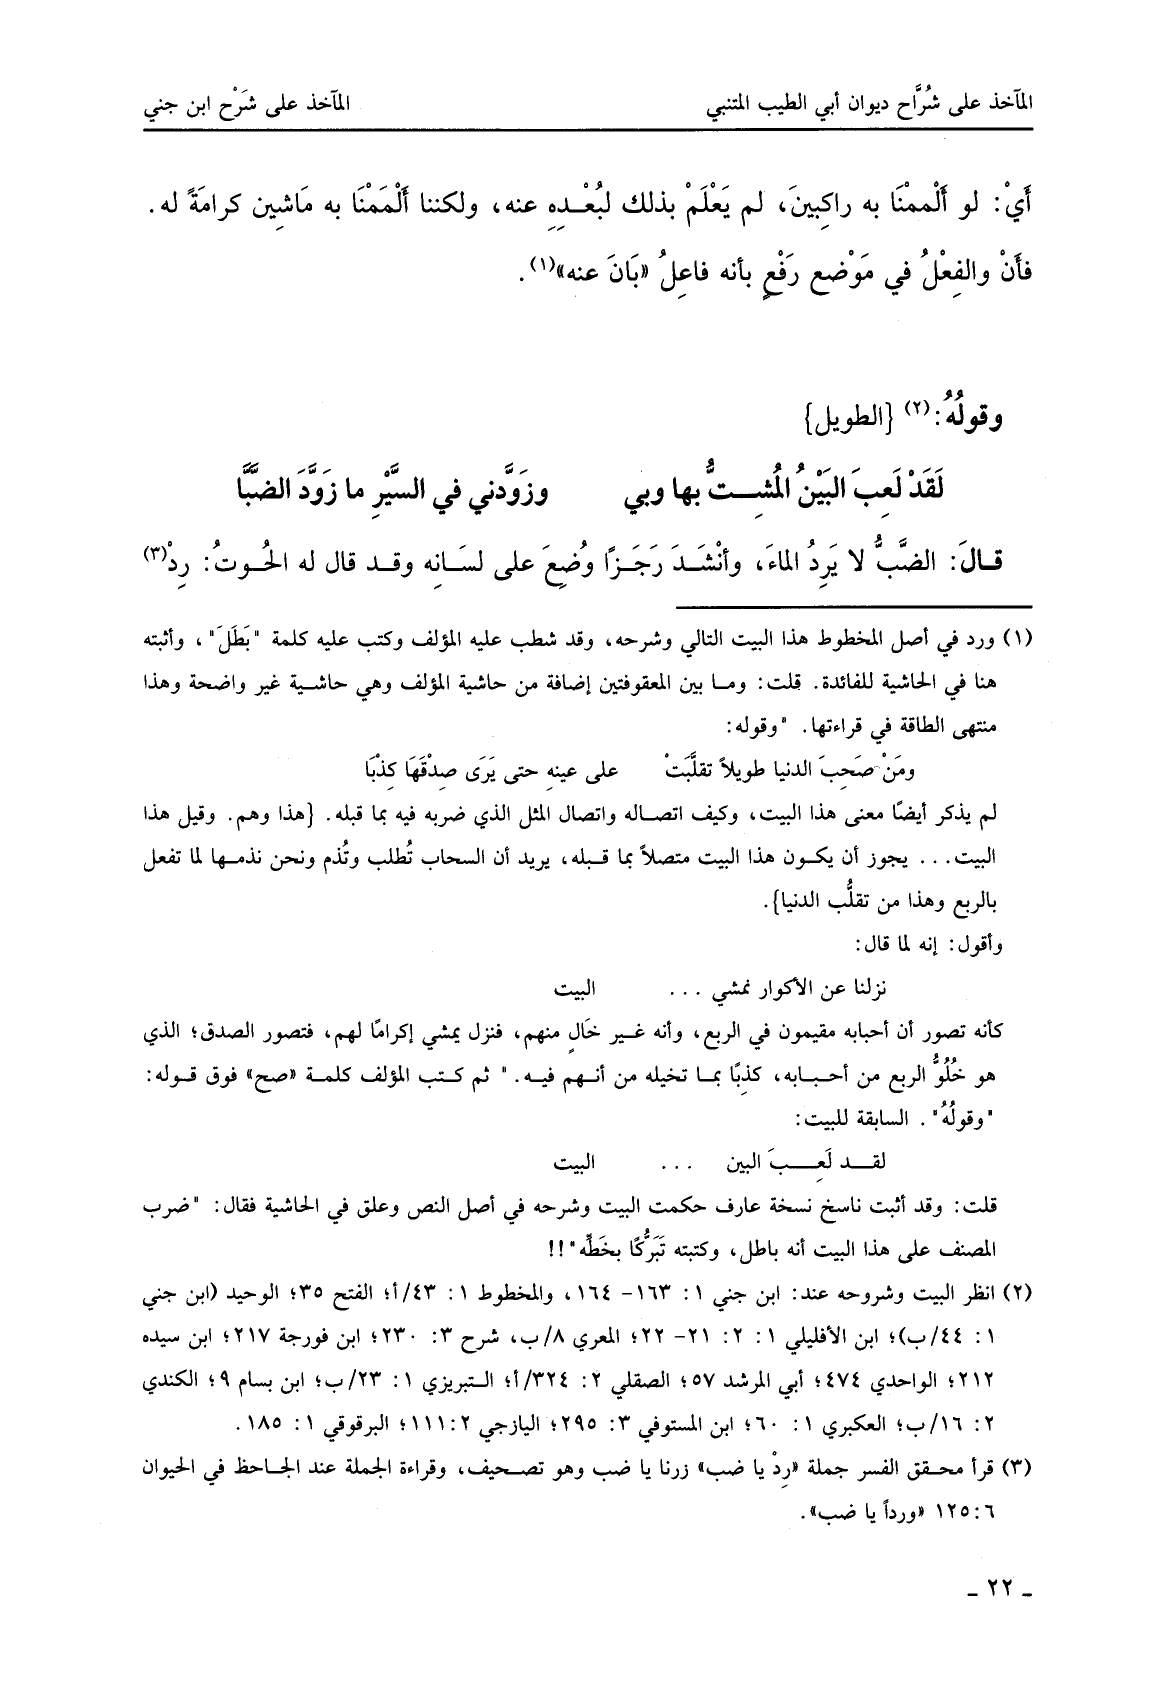 المآخذ على شُرَّاح ديوان أبي الطيب المتنبي المآخذ على شَرْح ابن جني
أَيْ: لو أَلْممْنَا به راكِبينَ، لم يَعْلَمْ بذلك لبُعْدِهِ عنه، ولكننا أَلْمَمْنَا به مَاشِين كرامَةً له.
فأَنْ والفِعْلُ في مَوْضع رَفْعٍ بأنه فاعِلُ «بَانَ عنه»(١).
وقولُهُ:(٢) {الطويل}
لَقَدْ لَعِبَ البَيْنُ المُشِتُّ بها وبي وزوَّدني في السيَّرِ ما زوَّدَ الضبَّا
قالَ: الضَّبُّ لا يَرِدُ الماءَ، وأنْشَدَ رَجَزًا وُضِعَ على لسَانِه وقد قال له الحُوتُ: رِدْ(٣)
(١) ورد في أصل المخطوط هذا البيت التالي وشرحه، وقد شطب عليه المؤلف وكتب عليه كلمة "بَطَلَ"، وأثبته
هنا في الحاشية للفائدة. قلت: وما بين المعقوفتين إضافة من حاشية المؤلف وهي حاشية غير واضحة وهذا
منتهى الطاقة في قراءتها. "وقوله:
ومَنْ صَحِبَ الدنيا طويلاً تقلَّبَتْ على عينهِ حتى يَرَى صِدْقَهَا كذْبَا
لم يذكر أيضًا معنى هذا البيت، وكيف اتصاله واتصال المثل الذي ضربه فيه بما قبله. {هذا وهم. وقيل هذا
البيت... يجوز أن يكون هذا البيت متصلاً بما قبله، يريد أن السحاب تُطلب وتُذم ونحن نذمها لما تفعل
بالربع وهذا من تقلُّب الدنيا}.
وأقول: إنه لما قال:
نزلنا عن الأكوار نمشي ... البيت
كأنه تصور أن أحبابه مقيمون في الربع، وأنه غير خَالٍ منهم، فنزل يمشي إكرامًا لهم، فتصور الصدق؛ الذي
هو خُلُوُّ الربع من أحبابه، كذبًا بما تخيله من أنهم فيه." ثم كتب المؤلف كلمة «صح» فوق قوله:
"وقولُهُ". السابقة للبيت:
لقد لَعِبَ البين ... البيت
قلت: وقد أثبت ناسخ نسخة عارف حكمت البيت وشرحه في أصل النص وعلق في الحاشية فقال: "ضرب
المصنف على هذا البيت أنه باطل، وكتبته تَبَرُّكًا بخَطِّه"!!
(٢) انظر البيت وشروحه عند: ابن جني ١: ١٦٣- ١٦٤، والمخطوط ١: ٤٣/أ؛ الفتح ٣٥؛ الوحيد (ابن جني
١: ٤٤/ب)؛ ابن الأفليلي ١: ٢: ٢١- ٢٢؛ المعري ٨/ب، شرح ٣: ٢٣٠؛ ابن فورجة ٢١٧؛ ابن سيده
٢١٢؛ الواحدي ٤٧٤؛ أبي المرشد ٥٧؛ الصقلي ٢: ٣٢٤/أ؛ التبريزي ١: ٢٣/ب؛ ابن بسام ٩؛ الكندي
٢: ١٦/ب؛ العكبري ١: ٦٠؛ ابن المستوفي ٣: ٢٩٥؛ اليازجي ٢:١١١؛ البرقوقي ١: ١٨٥.
(٣) قرأ محقق الفسر جملة «رِدْ يا ضب» زرنا يا ضب وهو تصحيف، وقراءة الجملة عند الجاحظ في الحيوان
٦:١٢٥ «ورداً يا ضب».
ـ ٢٢ ـ